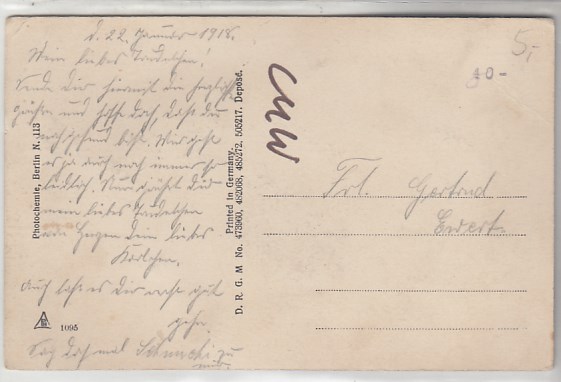 d. 22. Januar 1918.
Mein liebes Trudelchen!
Sende Dir hiermit die herzlichsten
Grüße und hoffe doch, daß du
noch gesund bist. Mir geht
es ja auch noch immer so
Nun grüßt Dich
mein liebes Trudelchen
von Herzen Dein liebes
Karlchen.
Auch laß es Dir recht gut
gehn.
Sag doch mal zu
mir.
Photochemie, Berlin N. 113
1095
Printed in Germany.
D. R. G. M No. 473960, 482008, 485272, 505217. Deposé.
CMW
5,-
10-
Frl. Gertrud
Ewert.